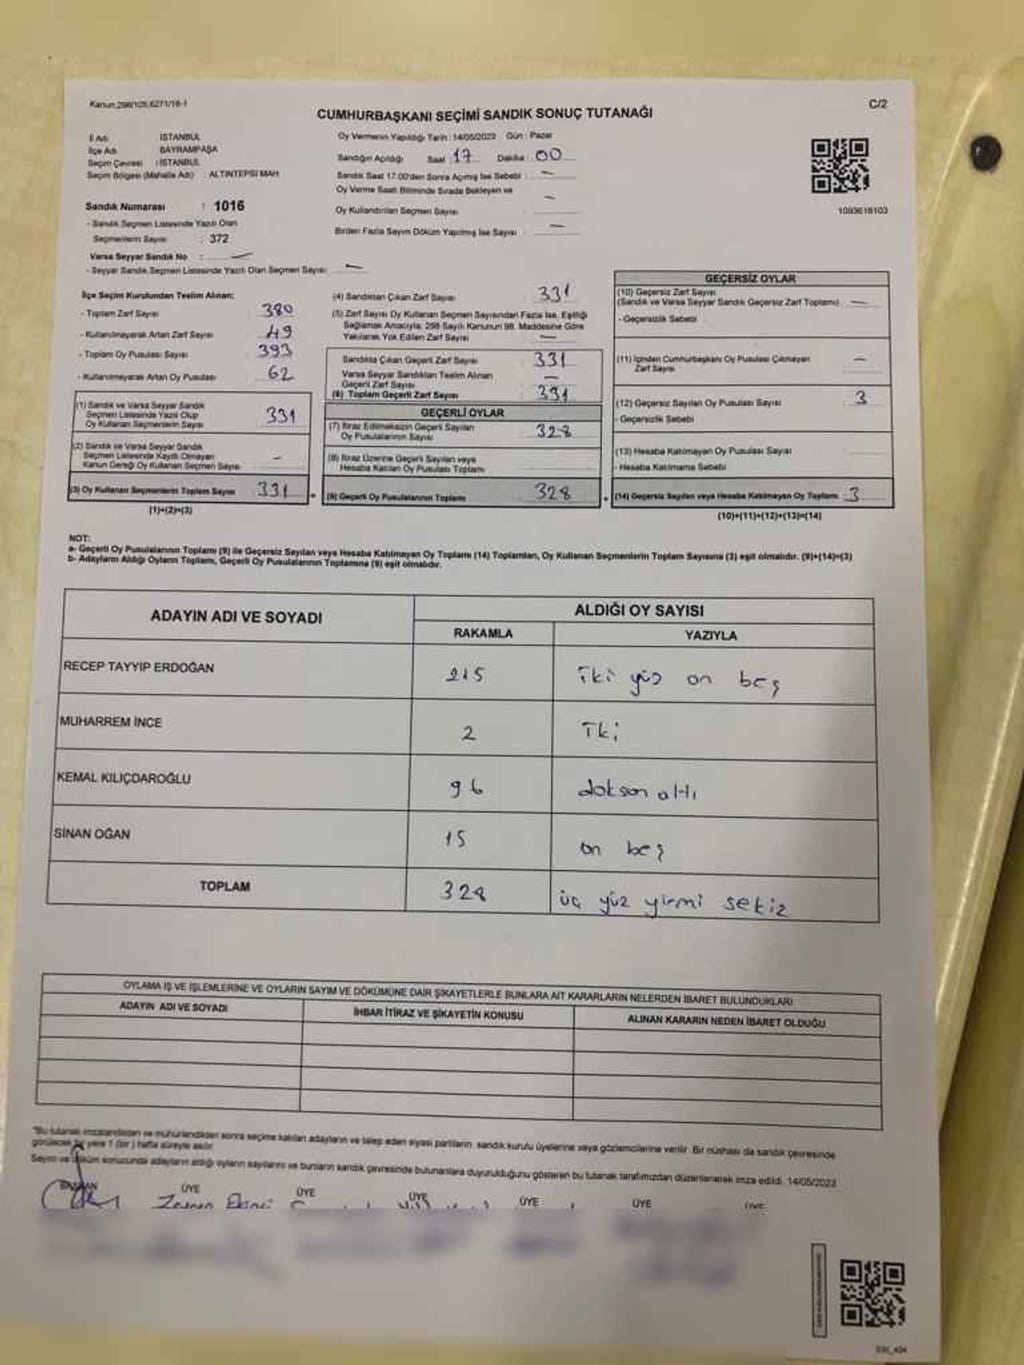 Kanun:298/105,6271/16-1
C/2
CUMHURBAŞKANI SEÇİMİ SANDIK SONUÇ TUTANAĞI
İl Adı : İSTANBUL
İlçe Adı : BAYRAMPAŞA
Seçim Çevresi : İSTANBUL
Seçim Bölgesi (Mahalle Adı) : ALTINTEPSİ MAH.
Sandık Numarası : 1016
- Sandık Seçmen Listesinde Yazılı Olan
Seçmenlerin Sayısı : 372
Varsa Seyyar Sandık No : —
- Seyyar Sandık Seçmen Listesinde Yazılı Olan Seçmen Sayısı —
Oy Vermenin Yapıldığı Tarih : 14/05/2023 Gün : Pazar
Sandığın Açıldığı Saat 17 Dakika : 00
Sandık Saat 17.00'den Sonra Açılmış İse Sebebi : —
Oy Verme Saati Bitiminde Sırada Bekleyen ve
Oy Kullandırılan Seçmen Sayısı —
Birden Fazla Sayım Döküm Yapılmış İse Sayısı —
1093618103
İlçe Seçim Kurulundan Teslim Alınan:
- Toplam Zarf Sayısı 380
- Kullanılmayarak Artan Zarf Sayısı 49
- Toplam Oy Pusulası Sayısı 393
- Kullanılmayarak Artan Oy Pusulası 62
(1) Sandık ve Varsa Seyyar Sandık
Seçmen Listesinde Yazılı Olup
Oy Kullanan Seçmenlerin Sayısı 331
(2) Sandık ve Varsa Seyyar Sandık
Seçmen Listesinde Kayıtlı Olmayan
Kanun Gereği Oy Kullanan Seçmen Sayısı -
(3) Oy Kullanan Seçmenlerin Toplam Sayısı 331
(1)+(2)=(3)
(4) Sandıktan Çıkan Zarf Sayısı 331
(5) Zarf Sayısı Oy Kullanan Seçmen Sayısından Fazla İse, Eşitliği
Sağlamak Amacıyla; 298 Sayılı Kanunun 98. Maddesine Göre
Yakılarak Yok Edilen Zarf Sayısı —
Sandıkta Çıkan Geçerli Zarf Sayısı 331
Varsa Seyyar Sandıktan Teslim Alınan
Geçerli Zarf Sayısı —
(6) Toplam Geçerli Zarf Sayısı 331
GEÇERLİ OYLAR
(7) İtiraz Edilmeksizin Geçerli Sayılan
Oy Pusulalarının Sayısı 328
(8) İtiraz Üzerine Geçerli Sayılan veya
Hesaba Katılan Oy Pusulası Toplamı
(9) Geçerli Oy Pusulalarının Toplamı 328
GEÇERSİZ OYLAR
(10) Geçersiz Zarf Sayısı
(Sandık ve Varsa Seyyar Sandık Geçersiz Zarf Toplamı) —
- Geçersizlik Sebebi
(11) İçinden Cumhurbaşkanı Oy Pusulası Çıkmayan
Zarf Sayısı —
(12) Geçersiz Sayılan Oy Pusulası Sayısı 3
- Geçersizlik Sebebi
(13) Hesaba Katılmayan Oy Pusulası Sayısı
- Hesaba Katılmama Sebebi
(14) Geçersiz Sayılan veya Hesaba Katılmayan Oy Toplamı 3
(10)+(11)+(12)+(13)=(14)
NOT:
a- Geçerli Oy Pusulalarının Toplamı (9) ile Geçersiz Sayılan veya Hesaba Katılmayan Oy Toplamı (14) Toplamları, Oy Kullanan Seçmenlerin Toplam Sayısına (3) eşit olmalıdır. (9)+(14)=(3)
b- Adayların Aldığı Oyların Toplamı, Geçerli Oy Pusulalarının Toplamına (9) eşit olmalıdır.
ADAYIN ADI VE SOYADI
ALDIĞI OY SAYISI
RAKAMLA YAZIYLA
RECEP TAYYİP ERDOĞAN 215 iki yüz on beş
MUHARREM İNCE 2 iki
KEMAL KILIÇDAROĞLU 96 doksan altı
SİNAN OĞAN 15 on beş
TOPLAM 328 üç yüz yirmi sekiz
OYLAMA İŞ VE İŞLEMLERİNE VE OYLARIN SAYIM VE DÖKÜMÜNE DAİR ŞİKAYETLERLE BUNLARA AİT KARARLARIN NELERDEN İBARET BULUNDUKLARI
ADAYIN ADI VE SOYADI İHBAR İTİRAZ VE ŞİKAYETİN KONUSU ALINAN KARARIN NEDEN İBARET OLDUĞU
"Bu tutanak imzalandıktan ve mühürlendikten sonra seçime katılan adayların ve talep eden siyasi partilerin, sandık kurulu üyelerine veya gözlemcilerine verilir. Bir nüshası da sandık çevresinde
görülecek bir yere 1 (bir) hafta süreyle asılır.
Sayım ve döküm sonucunda adayların aldığı oyların sayılarını ve bunların sandık çevresinde bulunanlara duyurulduğunu gösteren bu tutanak tarafımızdan düzenlenerek imza edildi. 14/05/2023
BAŞKAN ÜYE ÜYE ÜYE ÜYE ÜYE ÜYE
Zeynep Ekinci